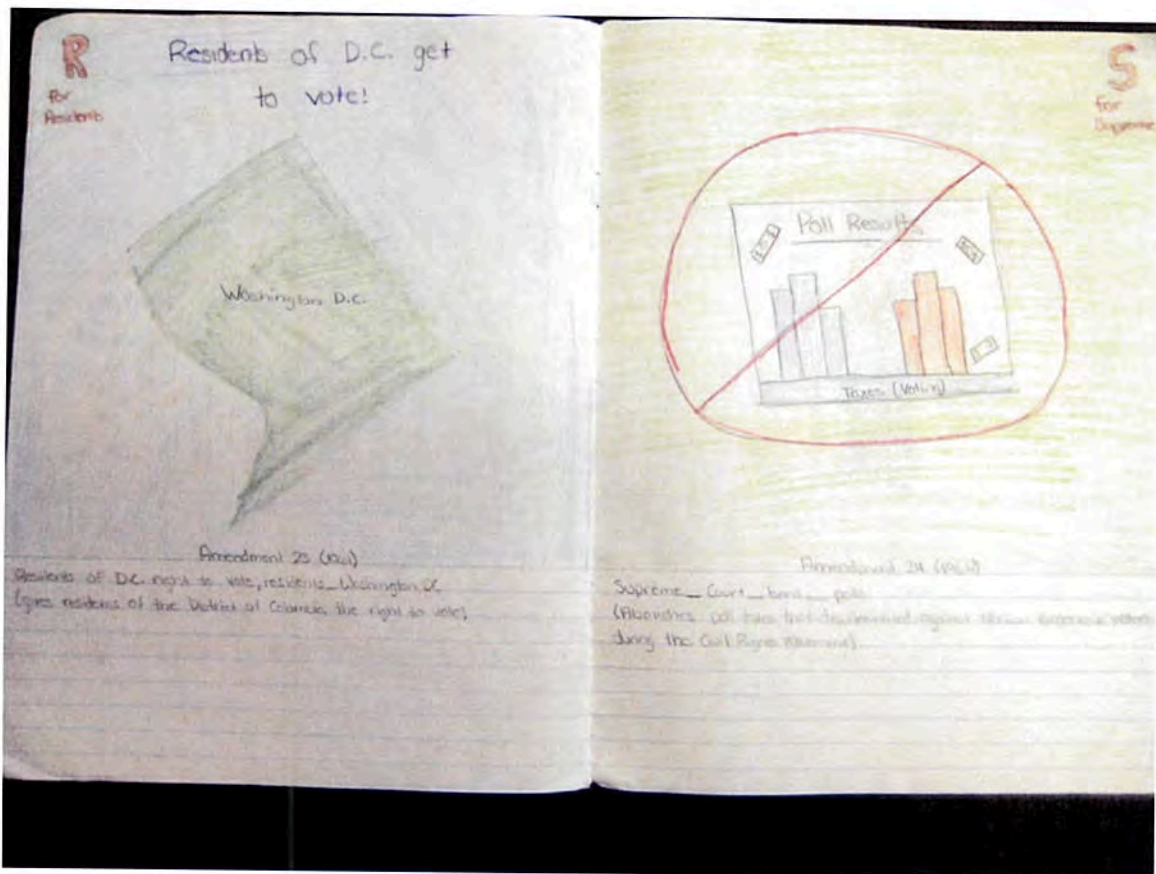 R
for
Residents
Residents of D.C. get
to vote!
Washington D.C.
Amendment 23 (1961)
Residents of D.C. right to vote, residents_Washington DC
(gives residents of the District of Columbia the right to vote)
S
for
Supreme
Poll Results
Taxes (Voting)
Amendment 24 (1964)
Supreme_ Court_ bans_ polls
(Abolishes poll taxes that discriminated against African American voters
during the Civil Rights movement)